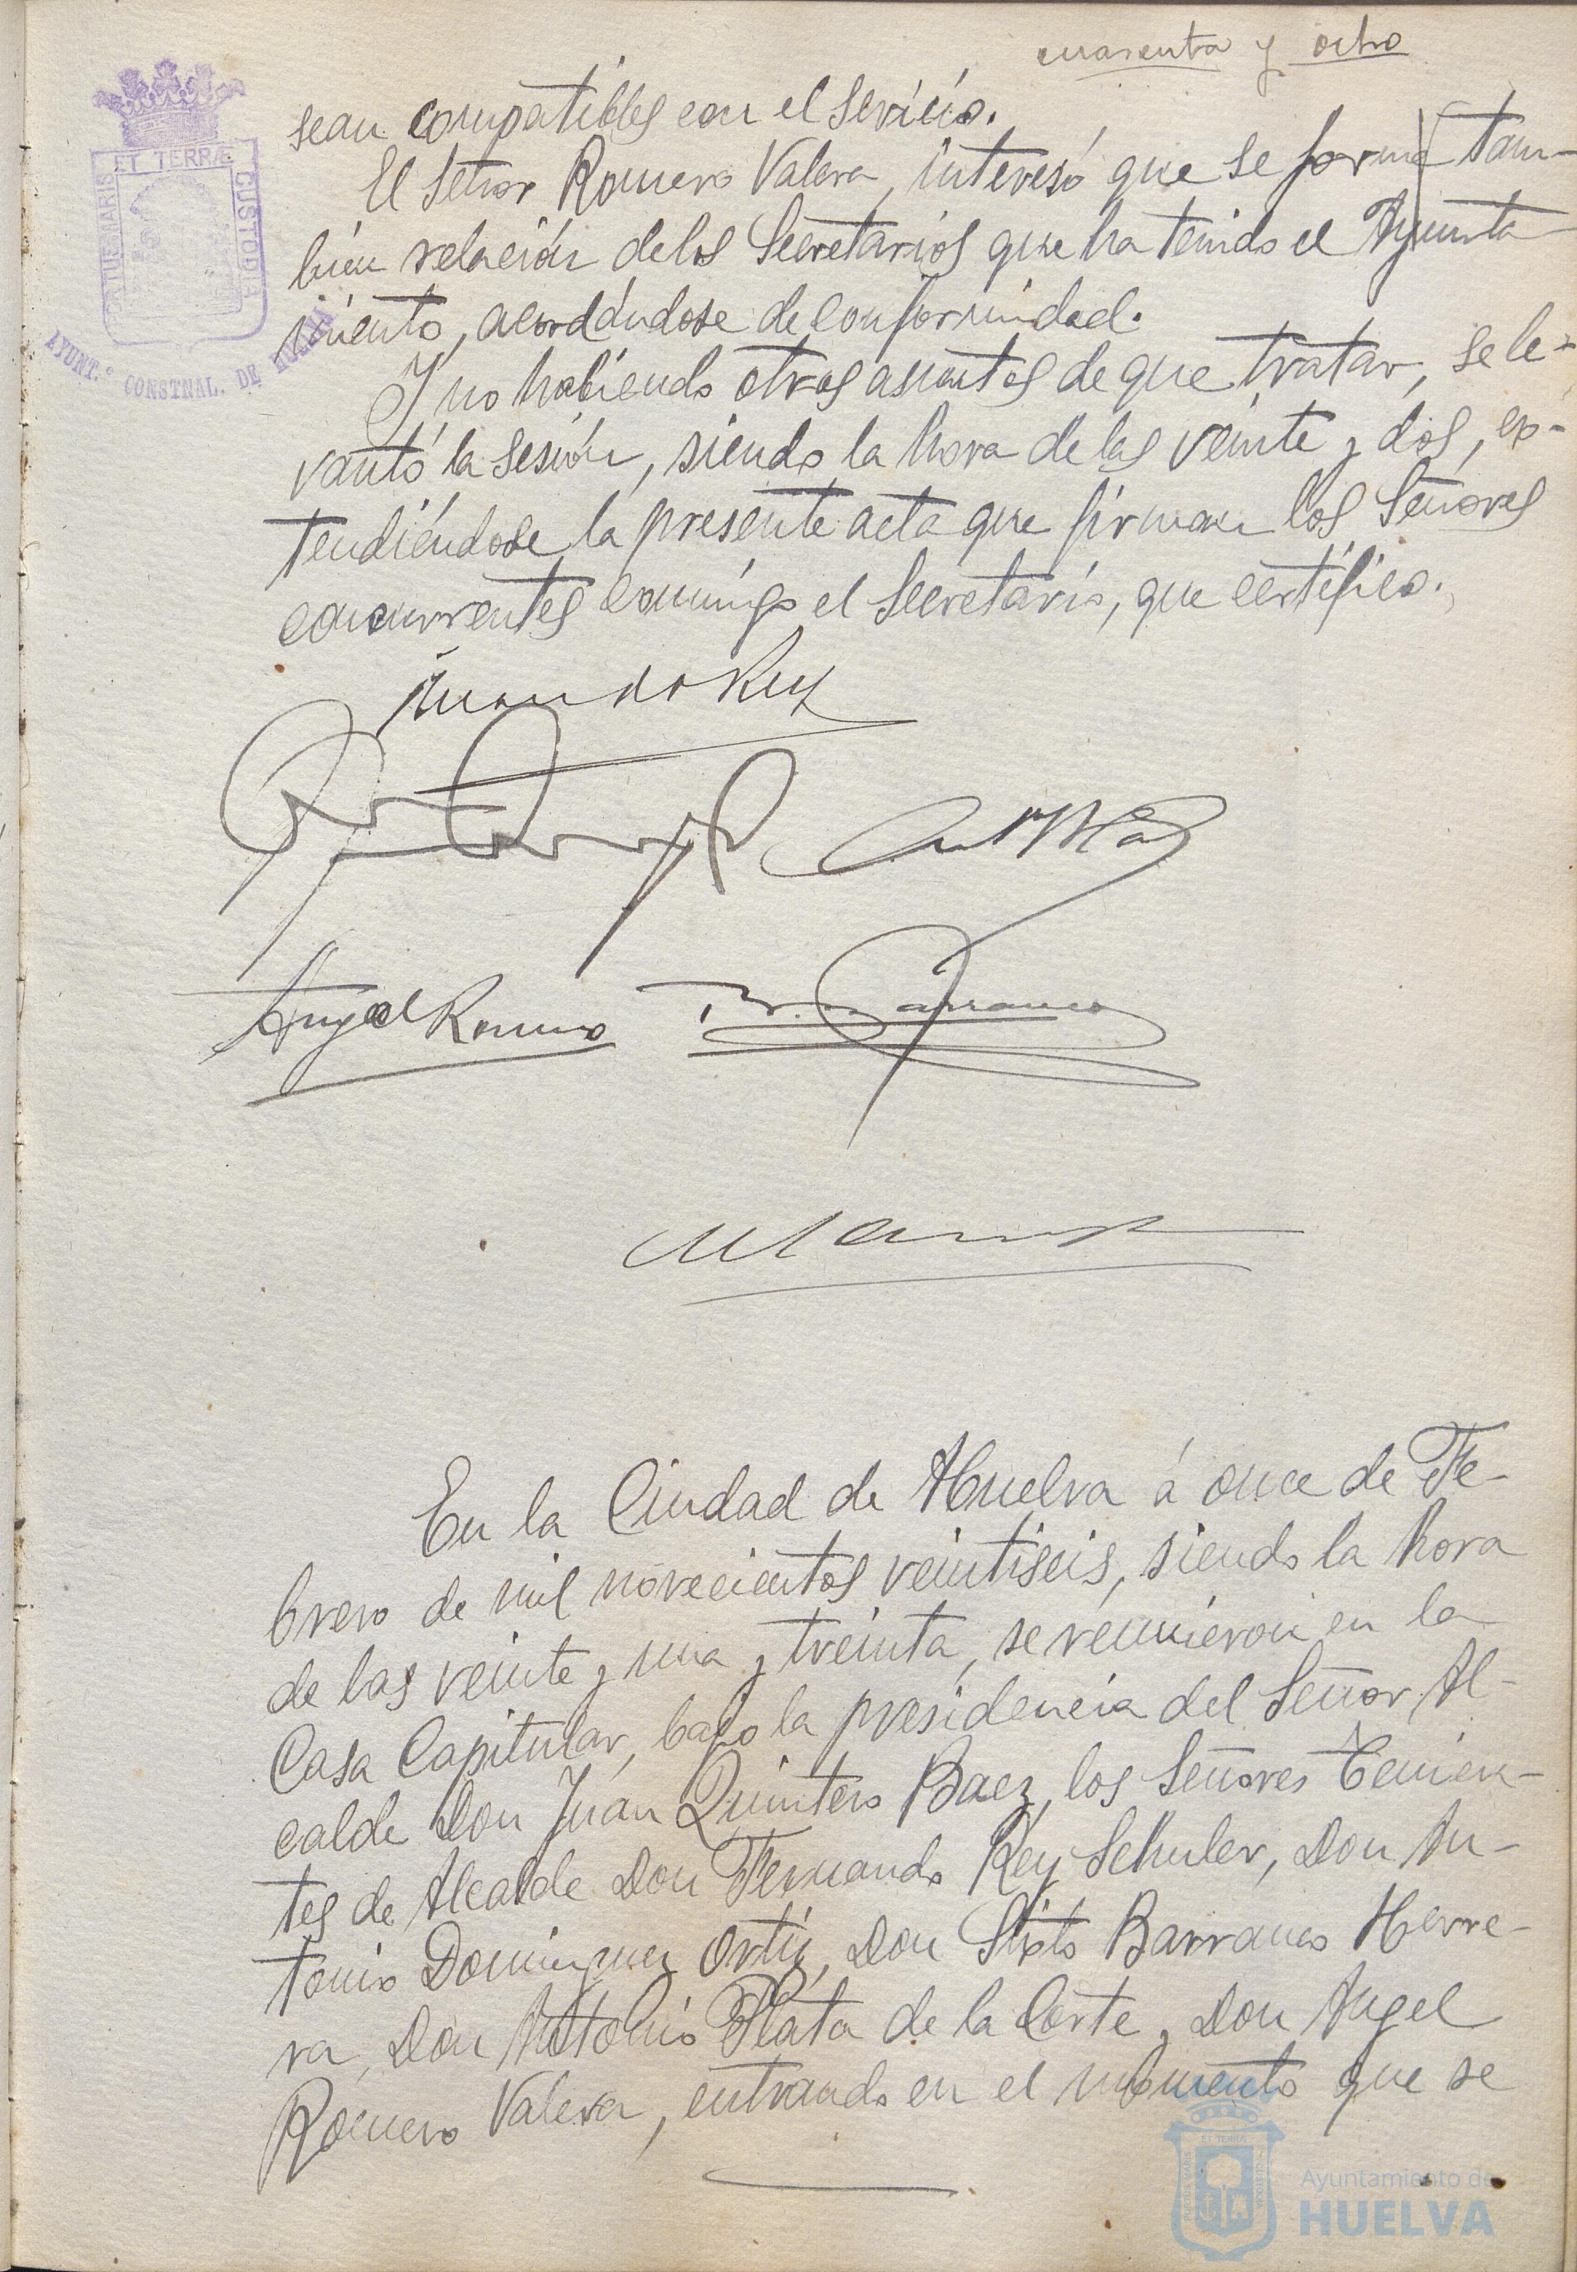 cuarenta y ocho
PORTUS MARIS ET TERRÆ CUSTODIA
AYUNT.º CONSTNAL. DE HUELVA
sean compatibles con el servicio.
El Señor Romero Valera, interesó que se forme tam-
bién relación de los Secretarios que ha tenido el Ayunta
miento, acordándose de conformidad.
Y no habiendo otros asuntos de que tratar, se le-
vantó la sesión, siendo la hora de las veinte y dos, ex-
tendiéndose la presente acta que firman los Señores
concurrentes conmigo el Secretario, que certifico.
Angel Romero
Barranco
En la Ciudad de Huelva á once de Fe-
brero de mil novecientos veintiseis, siendo la hora
de las veinte y una y treinta, se reunieron en la
Casa Capitular, bajo la presidencia del Señor Al-
calde Don Juan Quintero Baez, los Señores Tenien-
tes de Alcalde Don Fernando Rey Schuler, Don An-
tonio Dominguez Ortiz, Don Sixto Barranco Herre-
ra, Don Antonio Plata de la Corte, Don Angel
Romero Valera, entrando en el momento que se
Ayuntamiento de
HUELVA